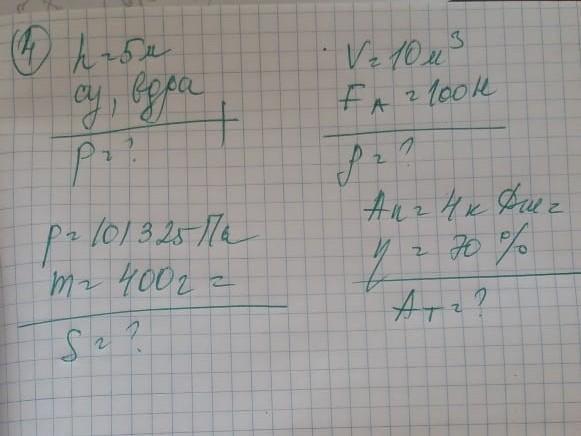 4
h = 5м
су, вдра
p = ?
V = 10м³
F_A = 100Н
ρ = ?
p = 101325 Па
m = 400г =
S = ?
Aп = 4к Дж =
η = 70 %
A_T = ?